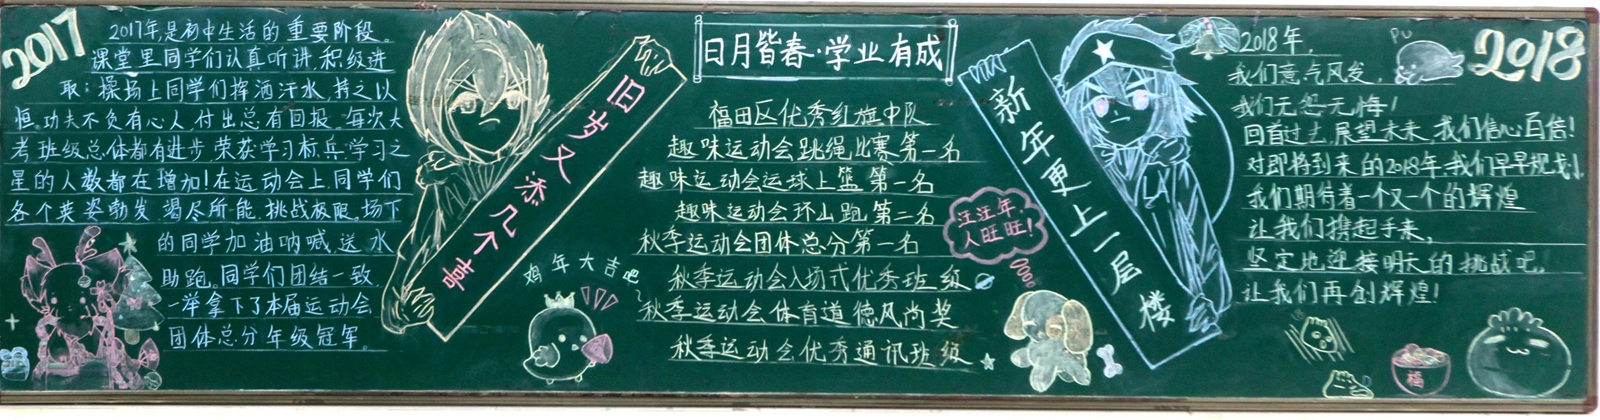 2017
2017年,是初中生活的重要阶段。
课堂里同学们认真听讲,积极进
取;操场上同学们挥洒汗水,持之以
恒。功夫不负有心人,付出总有回报。每次大
考班级总体都有进步,荣获学习标兵,学习之
星的人数都在增加!在运动会上,同学们
各个英姿勃发,竭尽所能,挑战极限。场下
的同学加油呐喊,送水
助跑。同学们团结一致,
一举拿下了本届运动会
团体总分年级冠军。
旧岁又添几个喜
鸡年大吉吧~
日月皆春·学业有成
福田区优秀红旗中队
趣味运动会跳绳比赛第一名
趣味运动会运球上篮第一名
趣味运动会环山跑第二名
秋季运动会团体总分第一名
秋季运动会入场式优秀班级
秋季运动会体育道德风尚奖
秋季运动会优秀通讯班级
新年更上一层楼
汪汪年,
人旺旺!
2018
PU
2018年,
我们意气风发,
我们无怨无悔!
回首过去,展望未来,我们信心百倍!
对即将到来的2018年,我们早早规划,
我们期待着一个又一个的辉煌
让我们携起手来,
坚定地迎接明天的挑战吧,
让我们再创辉煌!
福